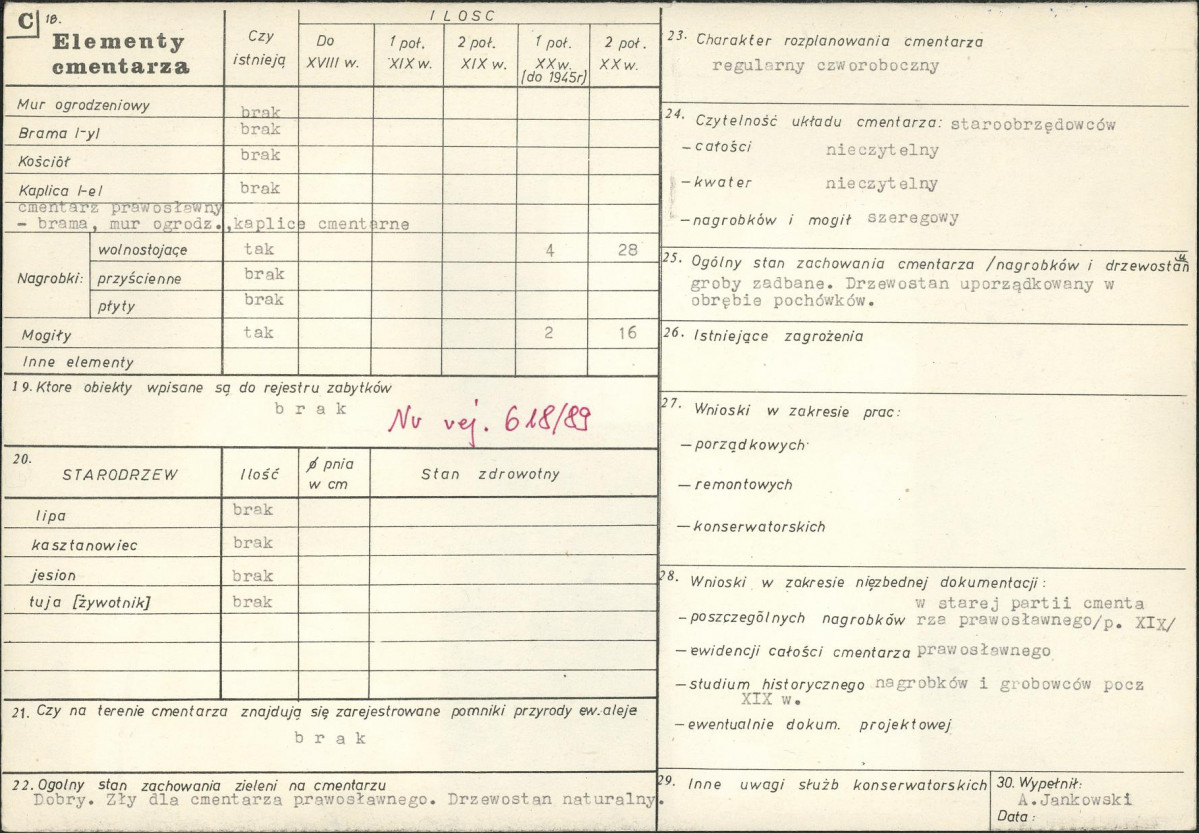 C 18.
Elementy cmentarza
Czy istnieją
ILOŚĆ
Do XVIII w.
1 poł. XIX w.
2 poł. XIX w.
1 poł. XX w. (do 1945r)
2 poł. XX w.
Mur ogrodzeniowy brak
Brama /-y/ brak
Kościół brak
Kaplica /-e/ brak
cmentarz prawosławny
- brama, mur ogrodz.,kaplice cmentarne
Nagrobki: wolnostojące tak 4 28
przyścienne brak
płyty brak
Mogiły tak 2 16
Inne elementy
19. Ktore obiekty wpisane są do rejestru zabytków
b r a k Nr rej. 618/89
20. STARODRZEW Ilość ø pnia w cm Stan zdrowotny
lipa brak
kasztanowiec brak
jesion brak
tuja [żywotnik] brak
21. Czy na terenie cmentarza znajdują się zarejestrowane pomniki przyrody ew. aleje
b r a k
22. Ogolny stan zachowania zieleni na cmentarzu
Dobry. Zły dla cmentarza prawosławnego. Drzewostan naturalny.
23. Charakter rozplanowania cmentarza
regularny czworoboczny
24. Czytelność układu cmentarza: staroobrzędowców
- całości nieczytelny
- kwater nieczytelny
- nagrobków i mogił szeregowy
25. Ogólny stan zachowania cmentarza /nagrobków i drzewostanu
groby zadbane. Drzewostan uporządkowany w
obrębie pochówków.
26. Istniejące zagrożenia
27. Wnioski w zakresie prac:
- porządkowych
- remontowych
- konserwatorskich
28. Wnioski w zakresie nięzbednej dokumentacji:
w starej partii cmenta
- poszczególnych nagrobków rza prawosławnego/p. XIX/
- ewidencji całości cmentarza prawosławnego
- studium historycznego nagrobków i grobowców pocz
XIX w.
- ewentualnie dokum. projektowej
29. Inne uwagi służb konserwatorskich
30. Wypełnił:
A.Jankowski
Data: